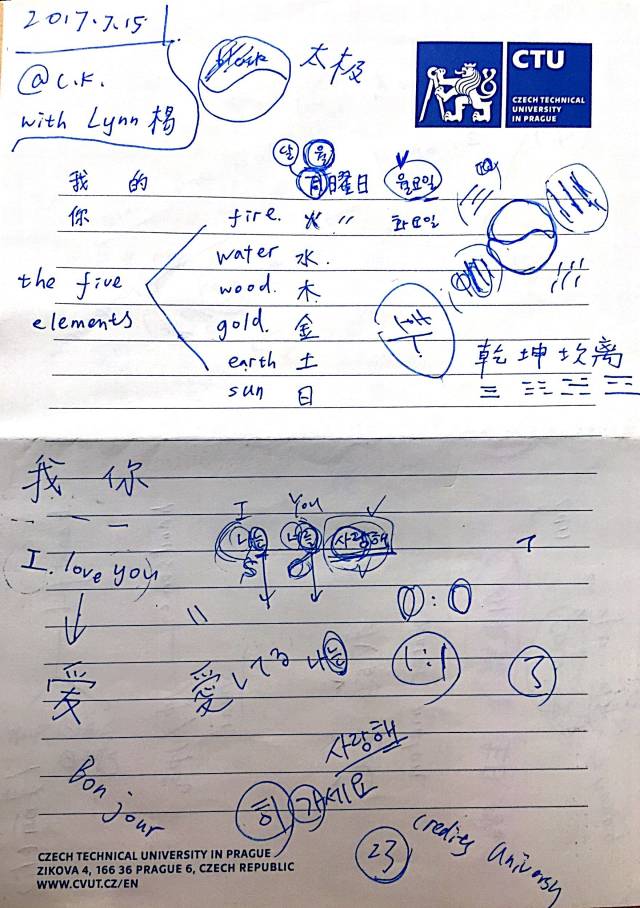 2017.7.15
@C.K.
with Lynn 楊
太极
CTU
CZECH TECHNICAL
UNIVERSITY
IN PRAGUE
달 월
我 的 月曜日 월요일
你 fire. 火 〃 화요일
water 水.
the five wood. 木
elements gold. 金
earth 土
sun 日
乾 坤 坎 离
我 你
I You
I love you 나는 너를 사랑해
0:0
爱 愛してる 나는 1:1 3
사랑해
Bonjour
히 가세요
23 credits University
CZECH TECHNICAL UNIVERSITY IN PRAGUE
ZIKOVA 4, 166 36 PRAGUE 6, CZECH REPUBLIC
WWW.CVUT.CZ/EN